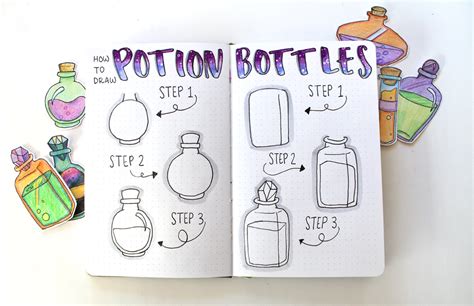 HOW TO DRAW
POTION BOTTLES
STEP 1
STEP 2
STEP 3
STEP 1
STEP 2
STEP 3